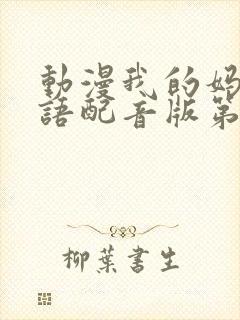 動漫我的媽
語配音版第
柳葉書生